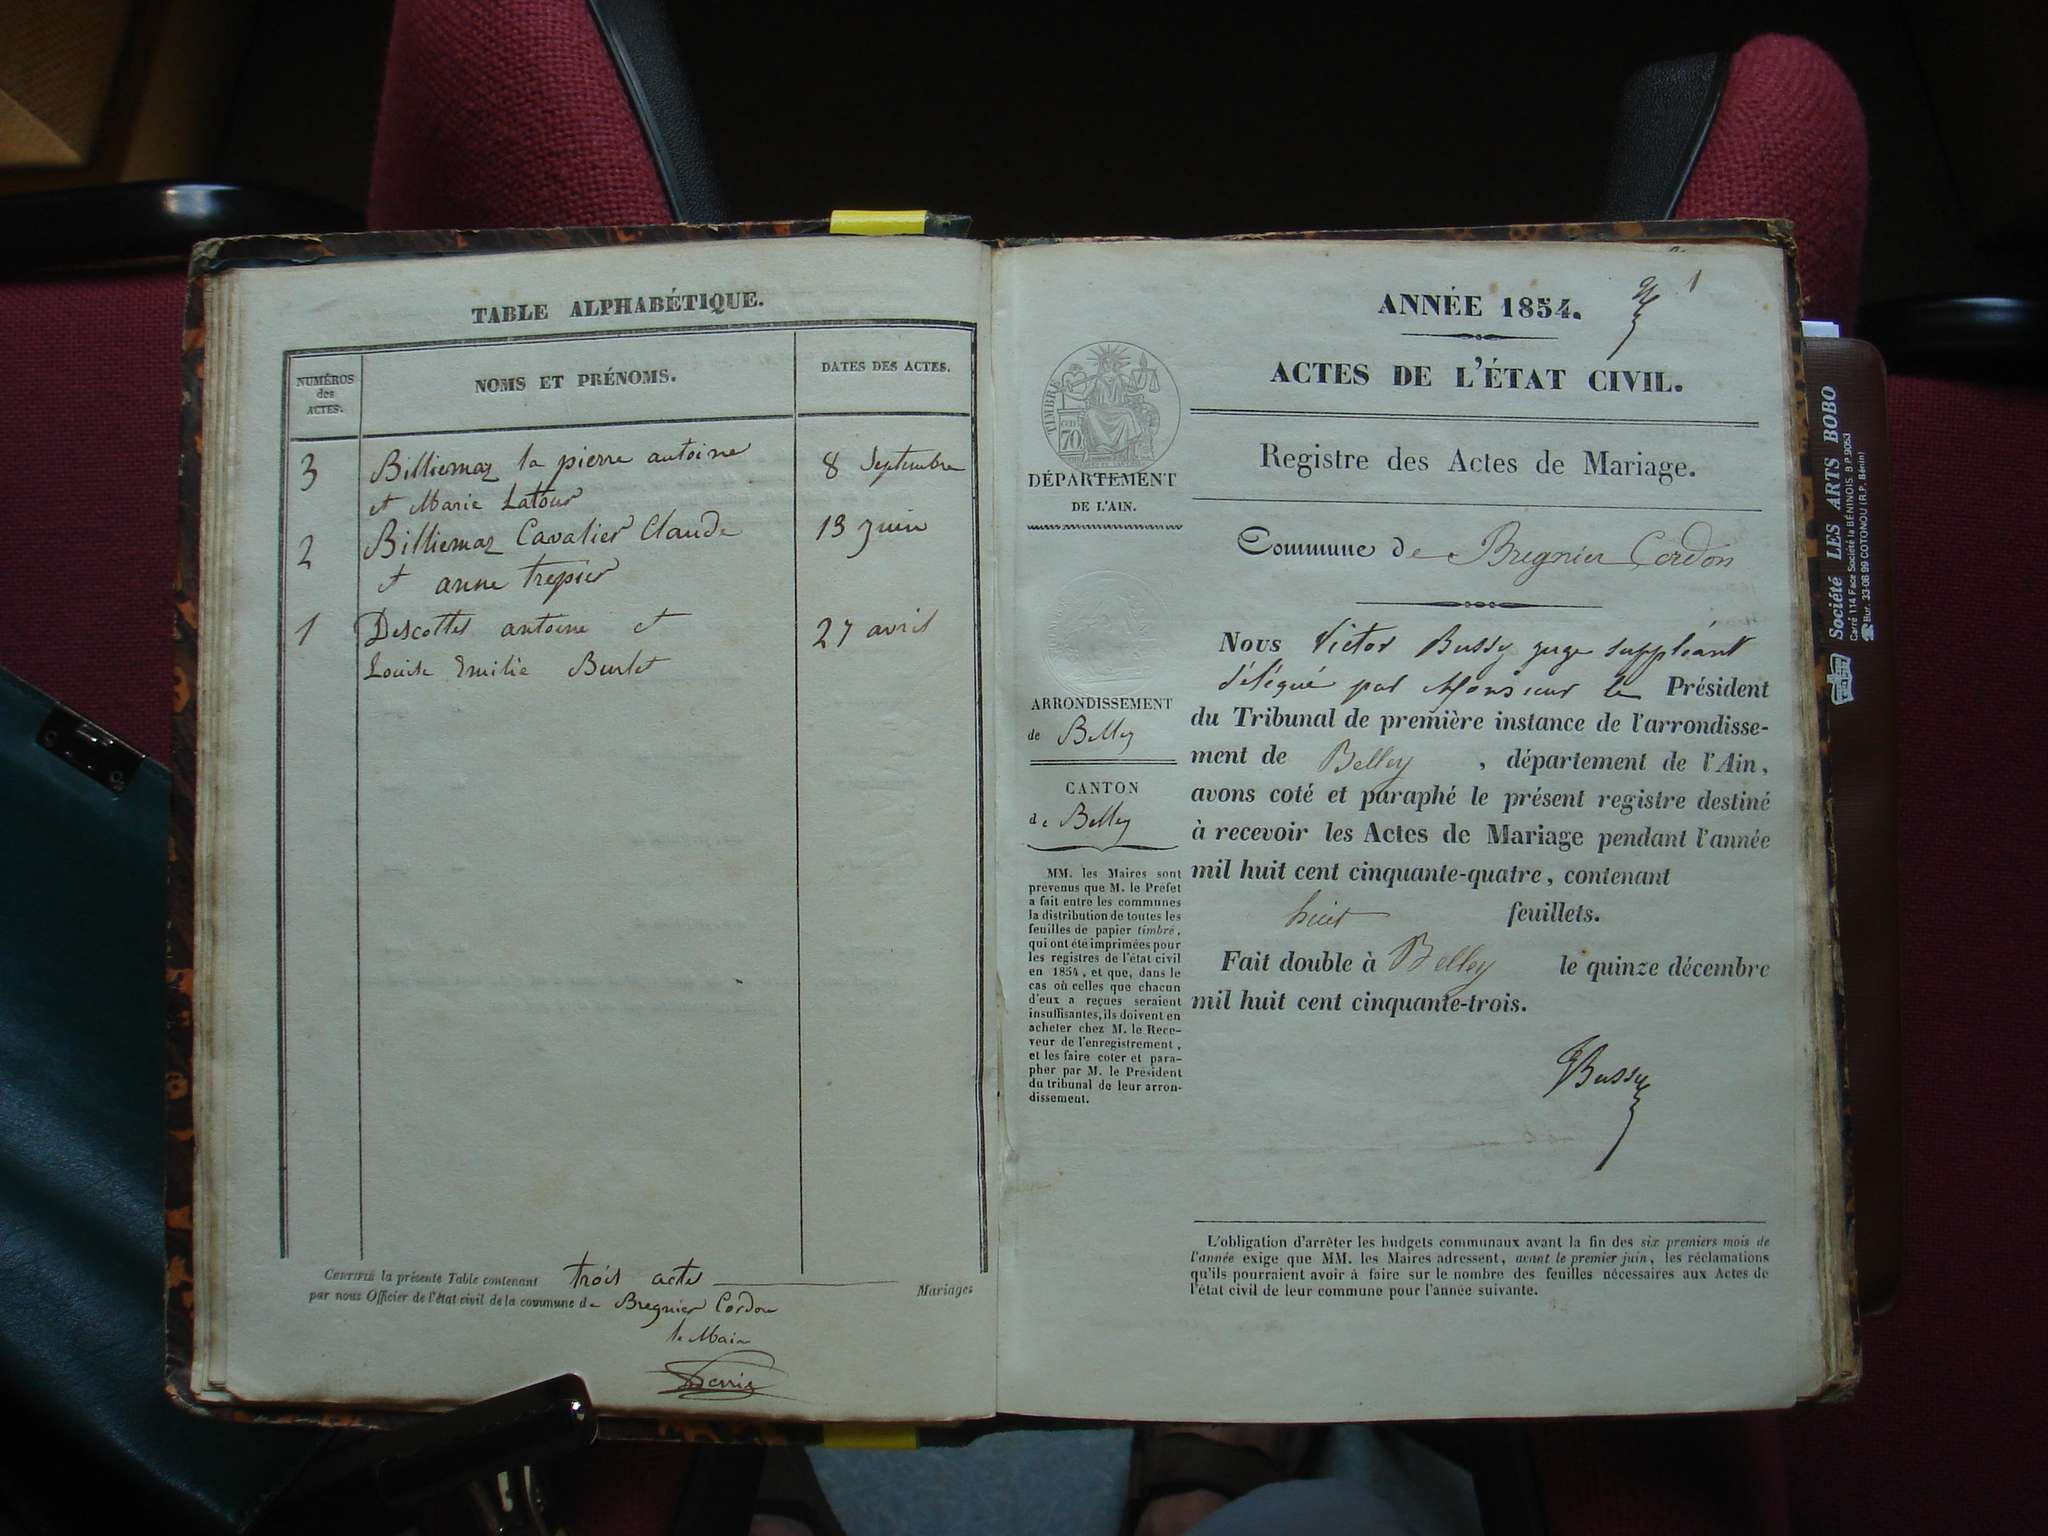 TABLE ALPHABÉTIQUE.
NUMÉROS
des
ACTES.
NOMS ET PRÉNOMS.
DATES DES ACTES.
3 Billiemaz la pierre antoine 8 Septembre
et Marie Latour
2 Billiemaz Cavalier Claude 13 juin
et anne trepier
1 Descottes antoine et 27 avril
Louise Emilie Burlet
CERTIFIÉ la présente Table contenant trois actes Mariages
par nous Officier de l'état civil de la commune de Bregnier Cordon
le Maire
1
ANNÉE 1854.
ACTES DE L'ÉTAT CIVIL.
Registre des Actes de Mariage.
TIMBRE
70
DÉPARTEMENT
DE L'AIN.
ARRONDISSEMENT
de Belley
CANTON
de Belley
MM. les Maires sont
prévenus que M. le Préfet
a fait entre les communes
la distribution de toutes les
feuilles de papier timbré,
qui ont été imprimées pour
les registres de l'état civil
en 1854, et que, dans le
cas où celles que chacun
d'eux a reçues seraient
insuffisantes, ils doivent en
acheter chez M. le Rece-
veur de l'enregistrement,
et les faire coter et para-
pher par M. le Président
du tribunal de leur arron-
dissement.
Commune de Bregnier Cordon
Nous Victor Bussy juge suppléant
délégué par Monsieur le Président
du Tribunal de première instance de l'arrondisse-
ment de Belley, département de l'Ain,
avons coté et paraphé le présent registre destiné
à recevoir les Actes de Mariage pendant l'année
mil huit cent cinquante-quatre, contenant
huit feuillets.
Fait double à Belley le quinze décembre
mil huit cent cinquante-trois.
Bussy
L'obligation d'arrêter les budgets communaux avant la fin des six premiers mois de
l'année exige que MM. les Maires adressent, avant le premier juin, les réclamations
qu'ils pourraient avoir à faire sur le nombre des feuilles nécessaires aux Actes de
l'état civil de leur commune pour l'année suivante.
Société LES ARTS BOBO
Carré 114 Face Société la BÉNINOIS. B.P. 9053
Bur. 33-08 99 COTONOU (R.P. Bénin)